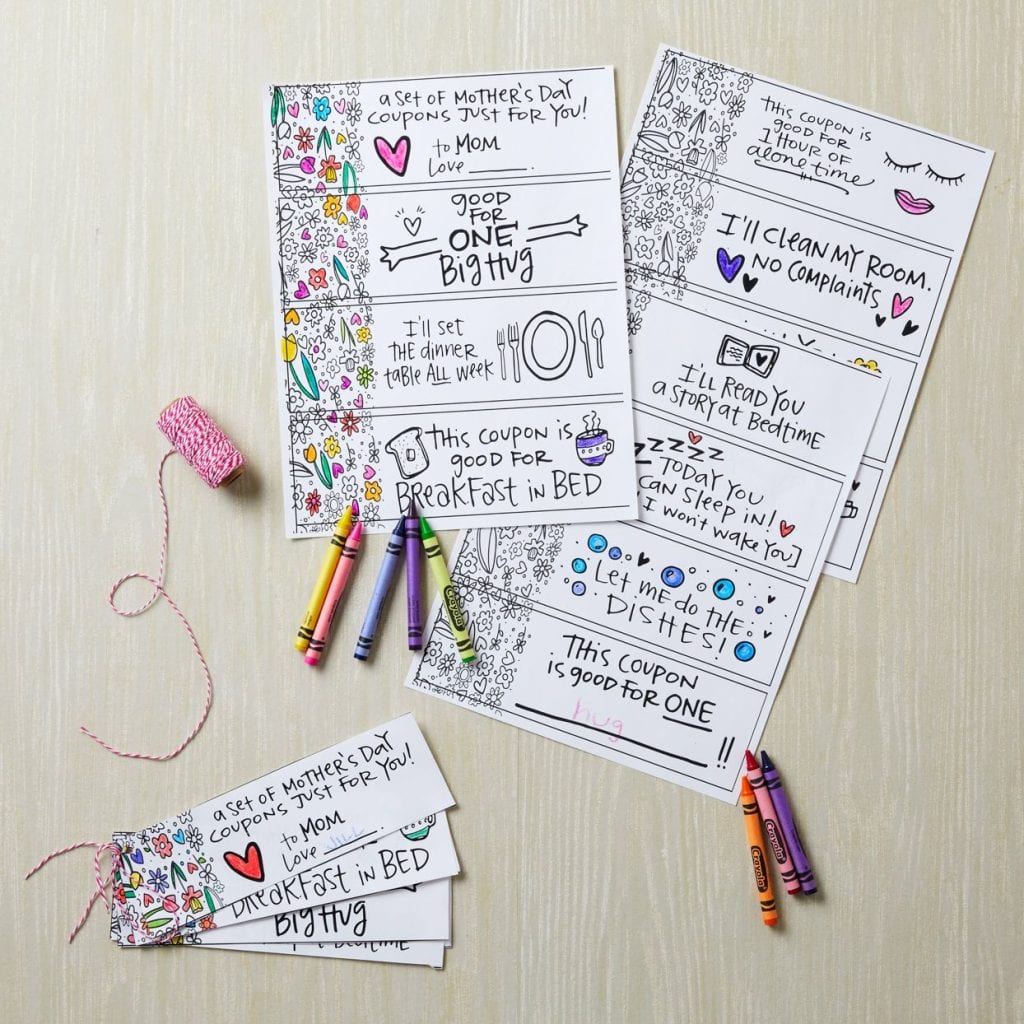 a set of Mother's Day
coupons just for you!
to Mom
Love
good
for
one
Big Hug
I'll set
the dinner
table all week
This coupon is
good for
Breakfast in Bed
This coupon is
good for
1 hour of
alone time
I'll clean my room.
no complaints
I'll read you
a story at bedtime
ZZZZZ
Today you
can sleep in!
I won't wake you]
Let me do the
dishes!
This coupon
is good for one
hug
!!
Crayola
Crayola
Crayola
a set of Mother's Day
coupons just for you!
to Mom
Love
Breakfast in Bed
Big Hug
Bedtime